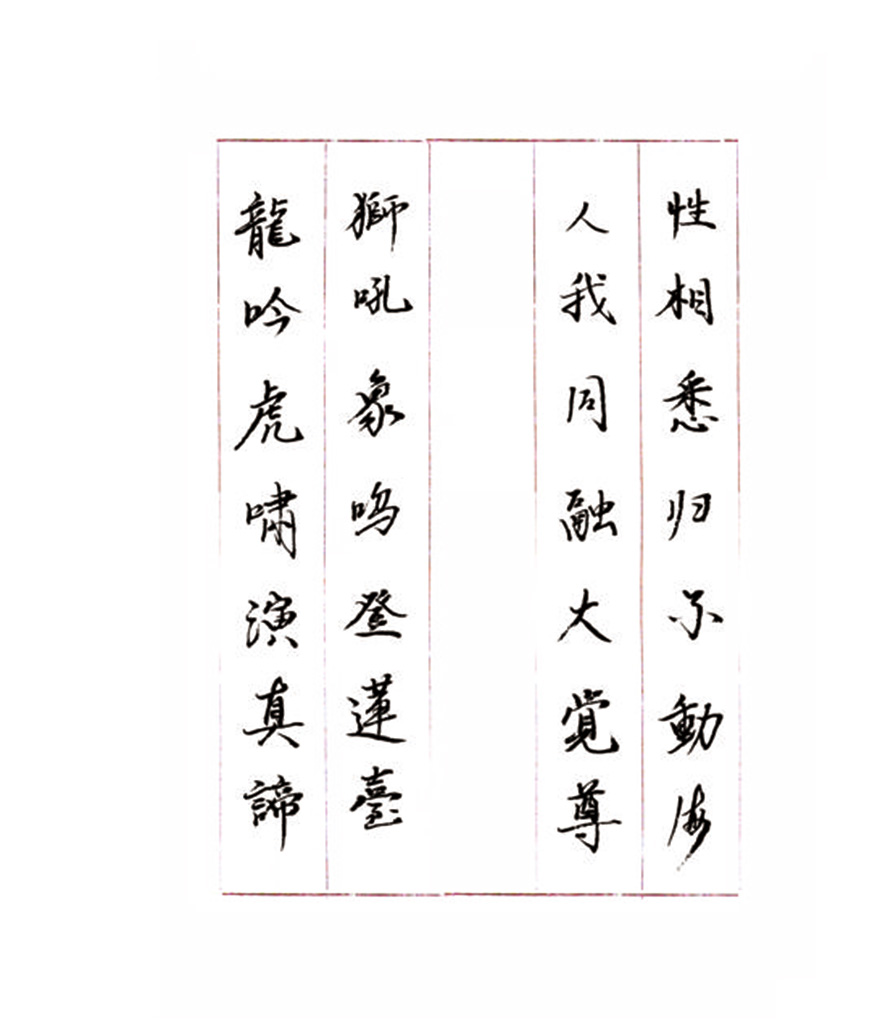 性相悉归不動海
人我同融大覚尊
獅吼象鸣登蓮臺
龍吟虎啸演真諦